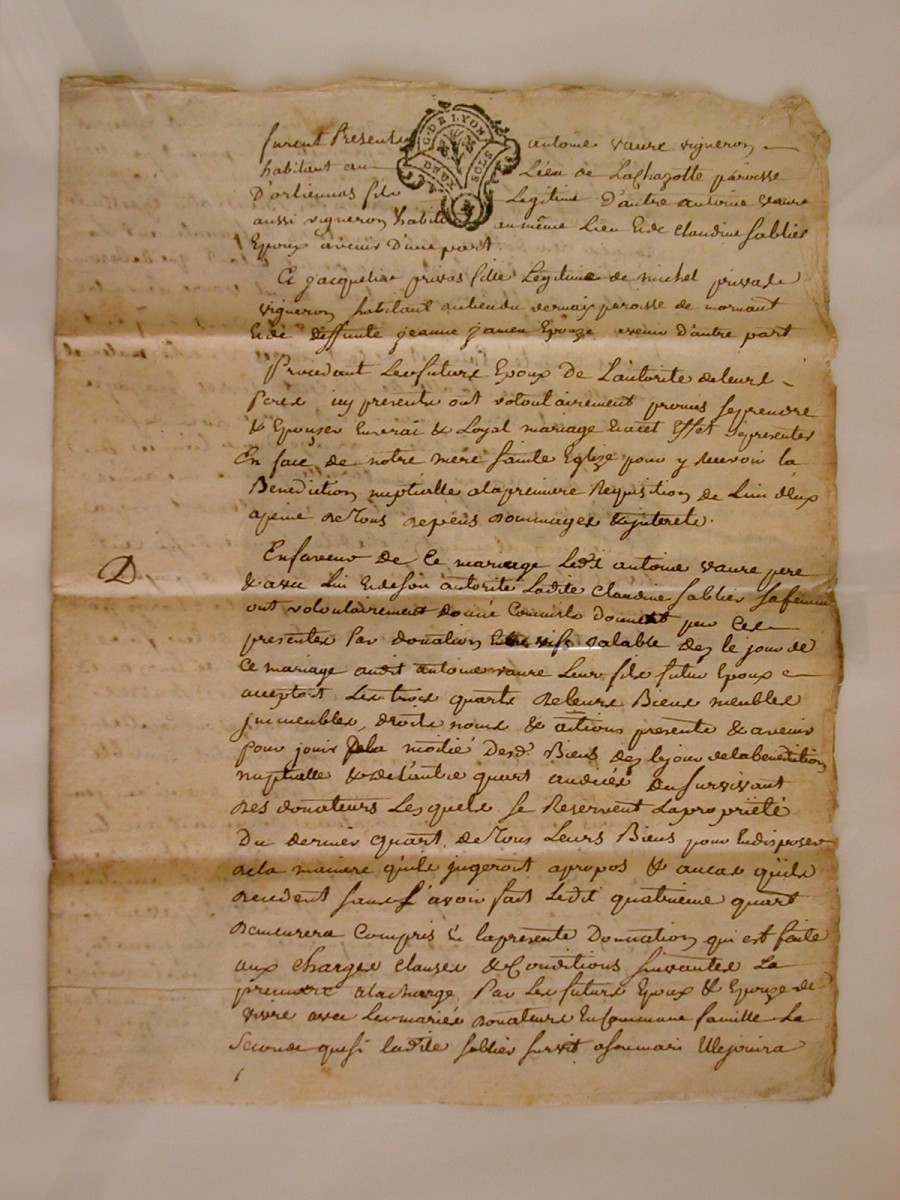 G. DE LYON
DEUX SOLS
furent Presents antoine vaure vigneron
habitant au Lieu de Lachazotte paroisse
D'orliennas fils Legitime D'autre antoine vaure
aussi vigneron habit au même Lieu & de Claudine Sablier
Epoux avenir D'une part.
Et jacqueline privas fille Legitime de michel privas
vigneron habitant au lieu du vernay paroisse de mornant
& de deffunte jeanne jamen Epouze avenir d'autre part
Procedant Les futurs Epoux De L'autorité de leurs
Peres icy presents ont volontairement promis se prendre
& Epouser En vrai & Loyal mariage & a cet Effet se presenter
En face de notre mere sainte Eglize pour y recevoir la
Benediction nuptialle a la premiere Requisition de L'un d'eux
a peine de Tous depens dommages & interets.
D
En faveur de Ce mariage Ledit antoine vaure pere
& avec Lui & de son autorité Ladite Claudine Sablier sa femme
ont volontairement donné Comme ils donnent par Ces
presentes Par donation Entre vifs valable des le jour de
Ce mariage audit antoine vaure Leur fils futur Epoux
acceptant Les trois quarts de leurs Biens meubles
immeubles, droits noms & actions presents & avenir
pour jouir de la moitié Desd. Biens des le jour de la benediction
nuptialle & de l'autre quart au decès du survivant
des donateurs Lesquels se Reservent La proprieté
Du dernier quart de Tous Leurs Biens pour En disposer
de la maniere qu'ils jugeront apropos & au cas qu'ils
decedent sans L'avoir fait Ledit quatrieme quart
demeurera Compris En la presente Donnation qui est faite
aux charges clauses & Conditions suivantes La
premiere a la charge Par Les futurs Epoux & Epouze de
vivre avec Les mariés donateurs En Commune famille La
seconde que si ladite Sablier survit a son mari Elle jouira